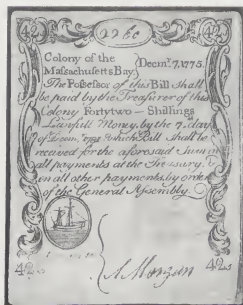 42s
42s
Colony of the
Massachusetts Bay
Decemr. 7, 1775.
The Possessor of this Bill shall
be paid by the Treasurer of this
Colony Fortytwo — Shillings
Lawfull Money, by the 7. day
of Decem. which Bill shall be
received for the aforesaid Sum in
all payments at the Treasury, &
in all other payments, by order
of the General Assembly.
42s
42s